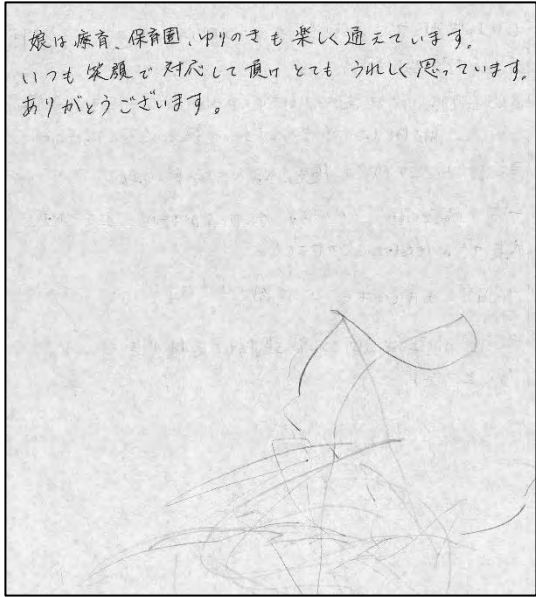 娘は療育、保育園、ゆりのきも楽しく通えています。
いつも笑顔で対応して頂けとてもうれしく思っています。
ありがとうございます。